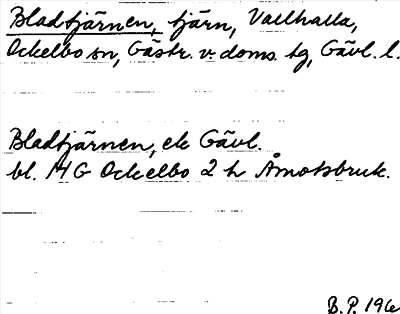 Bladtjärnen, tjärn, Vallhalla,
Ockelbo sn, Gästr. v. doms. tg, Gävl. l.
Bladtjärnen, ek Gävl.
bl. 14 G Ockelbo 2 h Åmotsbruk.
B.P. 196